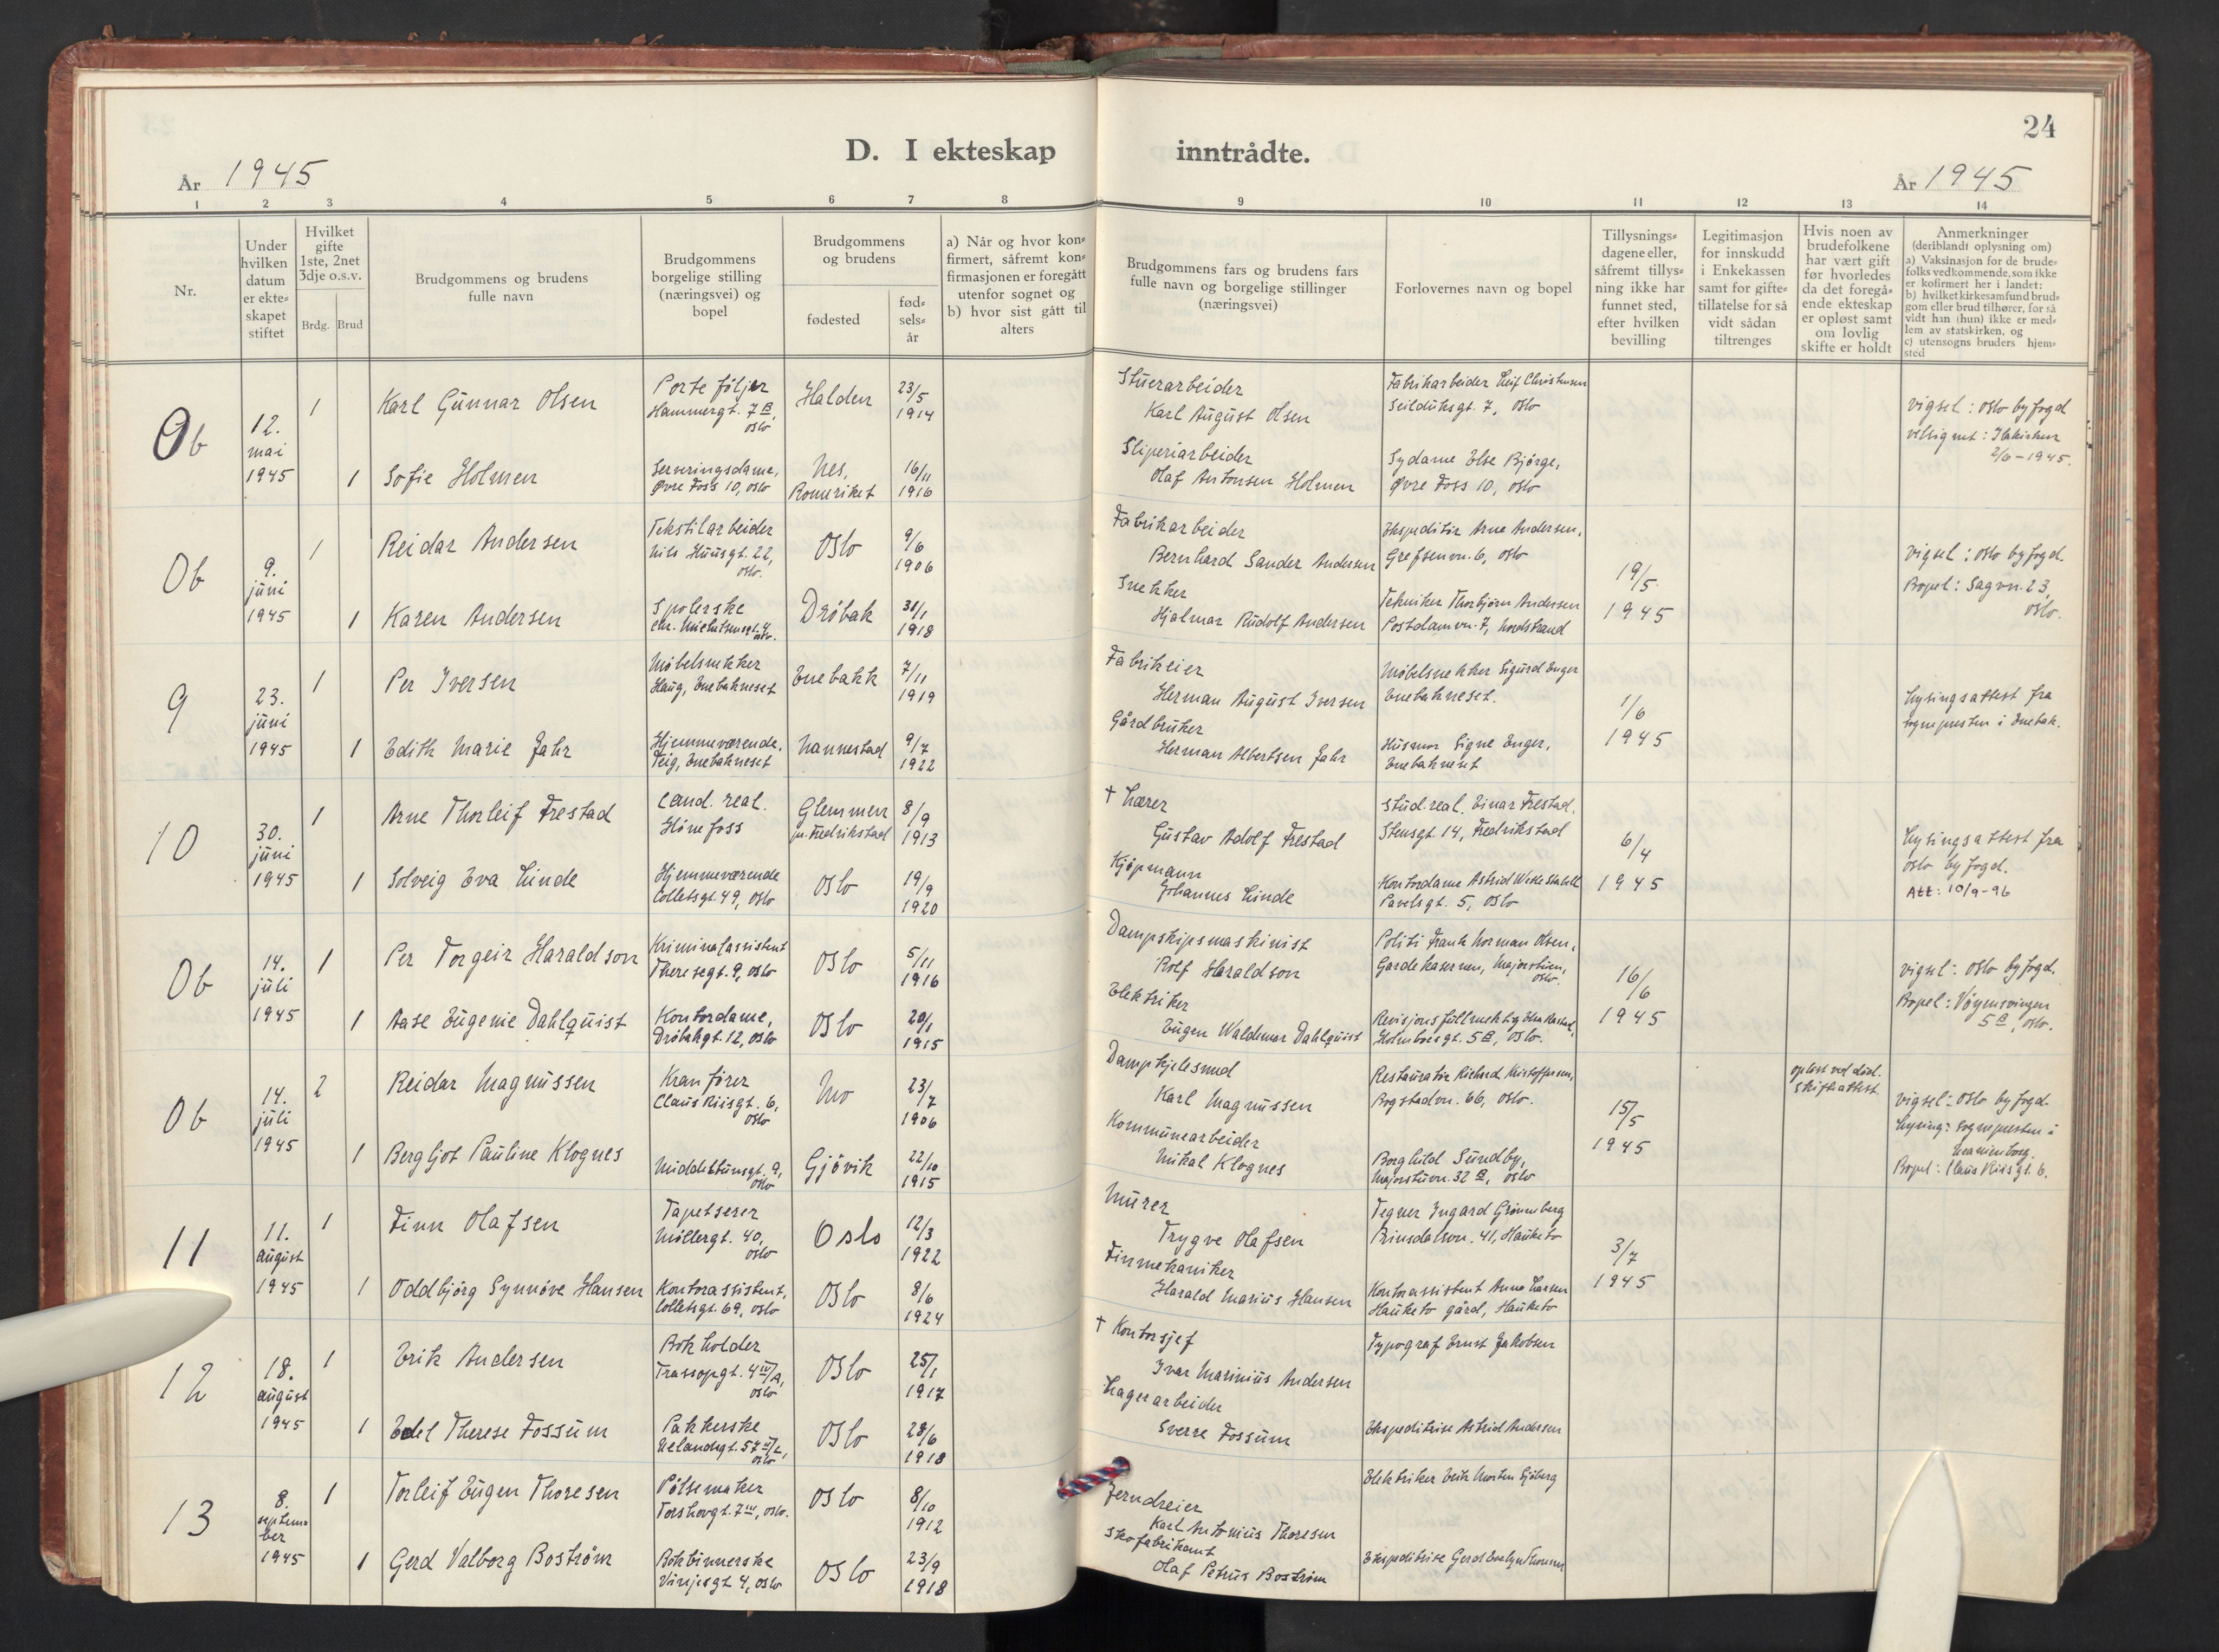 24
D. I ekteskap inntrådte.
År 1945
År 1945
1 2 3 4 5 6 7 8 9 10 11 12 13 14
Nr.
Under hvilken datum er ekteskapet stiftet
Hvilket gifte 1ste, 2net 3dje o.s.v.
Brdg. Brud
Brudgommens og brudens fulle navn
Brudgommens borgelige stilling (næringsvei) og bopel
Brudgommens og brudens
fødested
fødselsår
a) Når og hvor konfirmert, såfremt konfirmasjonen er foregått utenfor sognet og
b) hvor sist gått til alters
Brudgommens fars og brudens fars fulle navn og borgelige stillinger (næringsvei)
Forlovernes navn og bopel
Tillysningsdagene eller, såfremt tillysning ikke har funnet sted, efter hvilken bevilling
Legitimasjon for innskudd i Enkekassen samt for giftetillatelse for så vidt sådan tiltrenges
Hvis noen av brudefolkene har vært gift før hvorledes da det foregående ekteskap er opløst samt om lovlig skifte er holdt
Anmerkninger
(deriblandt oplysning om)
a) Vaksinasjon for de brudefolks vedkommende, som ikke er kofirmert her i landet:
b) hvilket kirkesamfund brudgom eller brud tilhører, for så vidt han (hun) ikke er medlem av statskirken, og
c) utensogns bruders hjemsted
Ob
12. mai 1945
1 Karl Gunnar Olsen
Porteføljer
Hammergt. 7 B, Oslo
Halden
23/5 1914
Stuerarbeider
Karl August Olsen
Fabrikarbeider Leif Christensen
Seilduksgt. 7, Oslo
vigsel: Oslo byfogd
velsignet: Ilakirken
2/6-1945.
1 Sofie Holmen
Serveringsdame,
Øvre Foss 10, Oslo
Nes, Romeriket
16/11 1916
Sliperiarbeider
Olaf Antonsen Holmen
Sydame Else Bjørge,
Øvre Foss 10, Oslo
Ob
9. juni 1945
1 Reidar Andersen
Tekstilarbeider
Nils Huusgt. 22, Oslo.
Oslo
9/6 1906
Fabrikarbeider
Bernhard Sander Andersen
Ekspeditør Arne Andersen,
Grefsenvn. 6, Oslo
19/5 1945
Vigsel: Oslo byfogd.
Bopel: Sagvn. 23, Oslo.
1 Karen Andersen
Spolerske
Chr. Michelsensgt. 4 Oslo.
Drøbak
31/1 1918
Snekker
Hjalmar Rudolf Andersen
Tekniker Thorbjørn Andersen
Postdamvn. 7, Nordstrand
9
23. juni 1945
1 Per Iversen
Møbelsnekker
Haug, Enebakneset
Enebakk
7/11 1919
Fabrikeier
Herman August Iversen
Møbelsnekker Sigurd Enger
Enebakneset.
1/6 1945
Lysingsattest fra
sognepresten i Enebak.
1 Edith Marie Jahr
Hjemmeværende,
Teig, Enebakneset
Nannestad
9/7 1922
Gårdbruker
Herman Albertsen Jahr
Husmor Signe Enger,
Enebakneset
10
30. juni 1945
1 Arne Thorleif Frestad
Cand. real.
Hønefoss
Glemmen
pr. Fredrikstad
8/9 1913
† Lærer
Gustav Adolf Frestad
Stud. real. Einar Frestad,
Stensgt 14, Fredrikstad
6/4 1945
Lysingsattest fra
Oslo byfogd.
Att: 10/9-96
1 Solveig Eva Linde
Hjemmeværende
Colletsgt. 49, Oslo
Oslo
19/9 1920
Kjøpmann
Johannes Linde
Kontordame Astrid
Pavelsgt. 5, Oslo
Ob
14. juli 1945
1 Per Torgeir Haraldson
Kriminalassistent
Theresegt. 9, Oslo
Oslo
5/11 1916
Dampskipsmaskinist
Rolf Haraldson
Politi Frank Norman Olsen,
Gardekasernen, Majorstuen, Oslo.
16/6 1945
Vigsel: Oslo byfogd.
Bopel: Vøyensvingen
5 B, Oslo.
1 Aase Eugenie Dahlquist
Kontordame,
Drøbakgt. 12, Oslo
Oslo
20/1 1915
Elektriker
Eugen Waldemar Dahlquist
Revisjonsfullmektig
Holmboesgt. 5 B, Oslo.
Ob
14. juli 1945
2 Reidar Magnussen
Kranfører
Claus Riisgt. 6, Oslo
Mo
23/7 1906
Dampkjelesmed
Karl Magnussen
Restauratør Richard Kristoffersen,
Bogstadvn. 66, Oslo.
15/5 1945
opløst ved død.
Skifteattest
Vigsel: Oslo byfogd.
Lysing: Sognepresten i
Bopel: Claus Riisgt. 6.
1 Bergljot Pauline Klognes
Middeltunsgt. 9, Oslo
Gjøvik
22/10 1915
Kommunearbeider
Mikal Klognes
Borghild Sundby,
Majorstuvn. 32 B, Oslo
11
11. august 1945
1 Finn Olafsen
Tapetserer
Møllergt. 40, Oslo
Oslo
12/3 1922
Murer
Trygve Olafsen
Tegner Ingard Grønneberg
Prinsdalsvn. 41, Hauketo
3/7 1945
1 Oddbjørg Synnøve Hansen
Kontorassistent,
Colletsgt. 69, Oslo
Oslo
8/6 1924
Finmekaniker
Harald Marius Hansen
Kontorassistent Anna Larsen
Hauketo gård, Hauketo
12
18. august 1945
1 Erik Andersen
Bokholder
Trassopgt. 4 IV/A, Oslo
Oslo
25/1 1917
† Kontorsjef
Ivar Marinius Andersen
Typograf Ernst Jakobsen
1 Edel Therese Fossum
Pakkerske
Uelandsgt. Oslo
Oslo
28/6 1918
Lagerarbeider
Sverre Fossum
Ekspeditrise Astrid Andersen
13
8. september 1945
1 Torleif Eugen Thoresen
Pølsemaker
Torshovgt. 7 III, Oslo.
Oslo
8/10 1912
Jerndreier
Karl Antonius Thoresen
Elektriker Erik Morten Sjøberg
1 Gerd Valborg Boström
Bokbinnerske
Vinjesgt 4, Oslo
Oslo
23/9 1918
Skofabrikant
Olaf Petrus Boström
Ekspeditrise Gerd Evelyn Thoresen